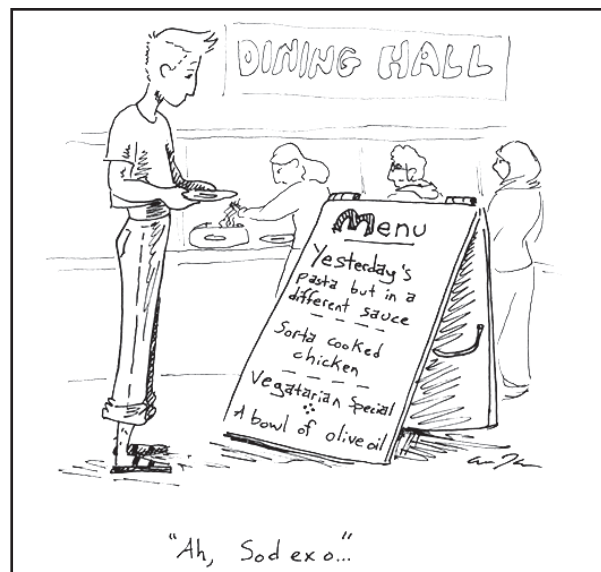 DINING HALL
Menu
Yesterday's
pasta but in a
different sauce
Sorta cooked
chicken
Vegatarian Special
A bowl of olive oil
"Ah, Sodexo..."